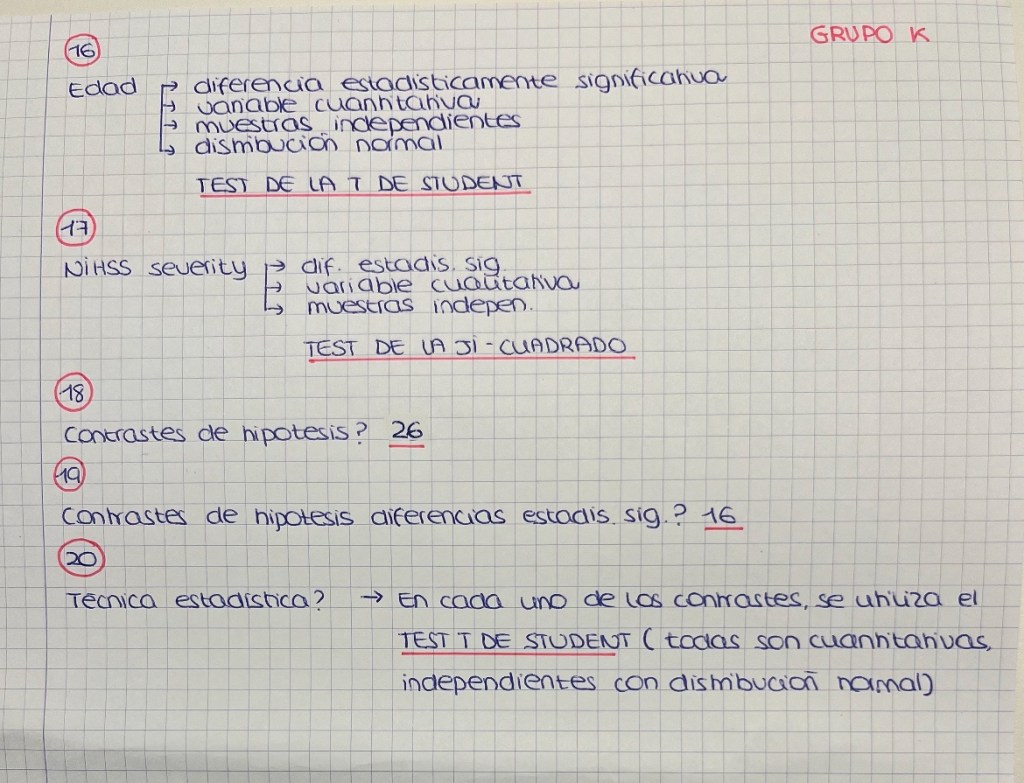 GRUPO K
16
Edad → diferencia estadísticamente significativa
→ variable cuantitativa
→ muestras independientes
→ distribución normal
TEST DE LA T DE STUDENT
17
NiHSS severity → dif. estadis. sig.
→ variable cualitativa
→ muestras indepen.
TEST DE LA JI-CUADRADO
18
Contrastes de hipotesis? 26
19
Contrastes de hipotesis diferencias estadis. sig.? 16
20
Técnica estadística? → En cada uno de los contrastes, se utiliza el
TEST T DE STUDENT (todas son cuantitativas,
independientes con distribución normal)